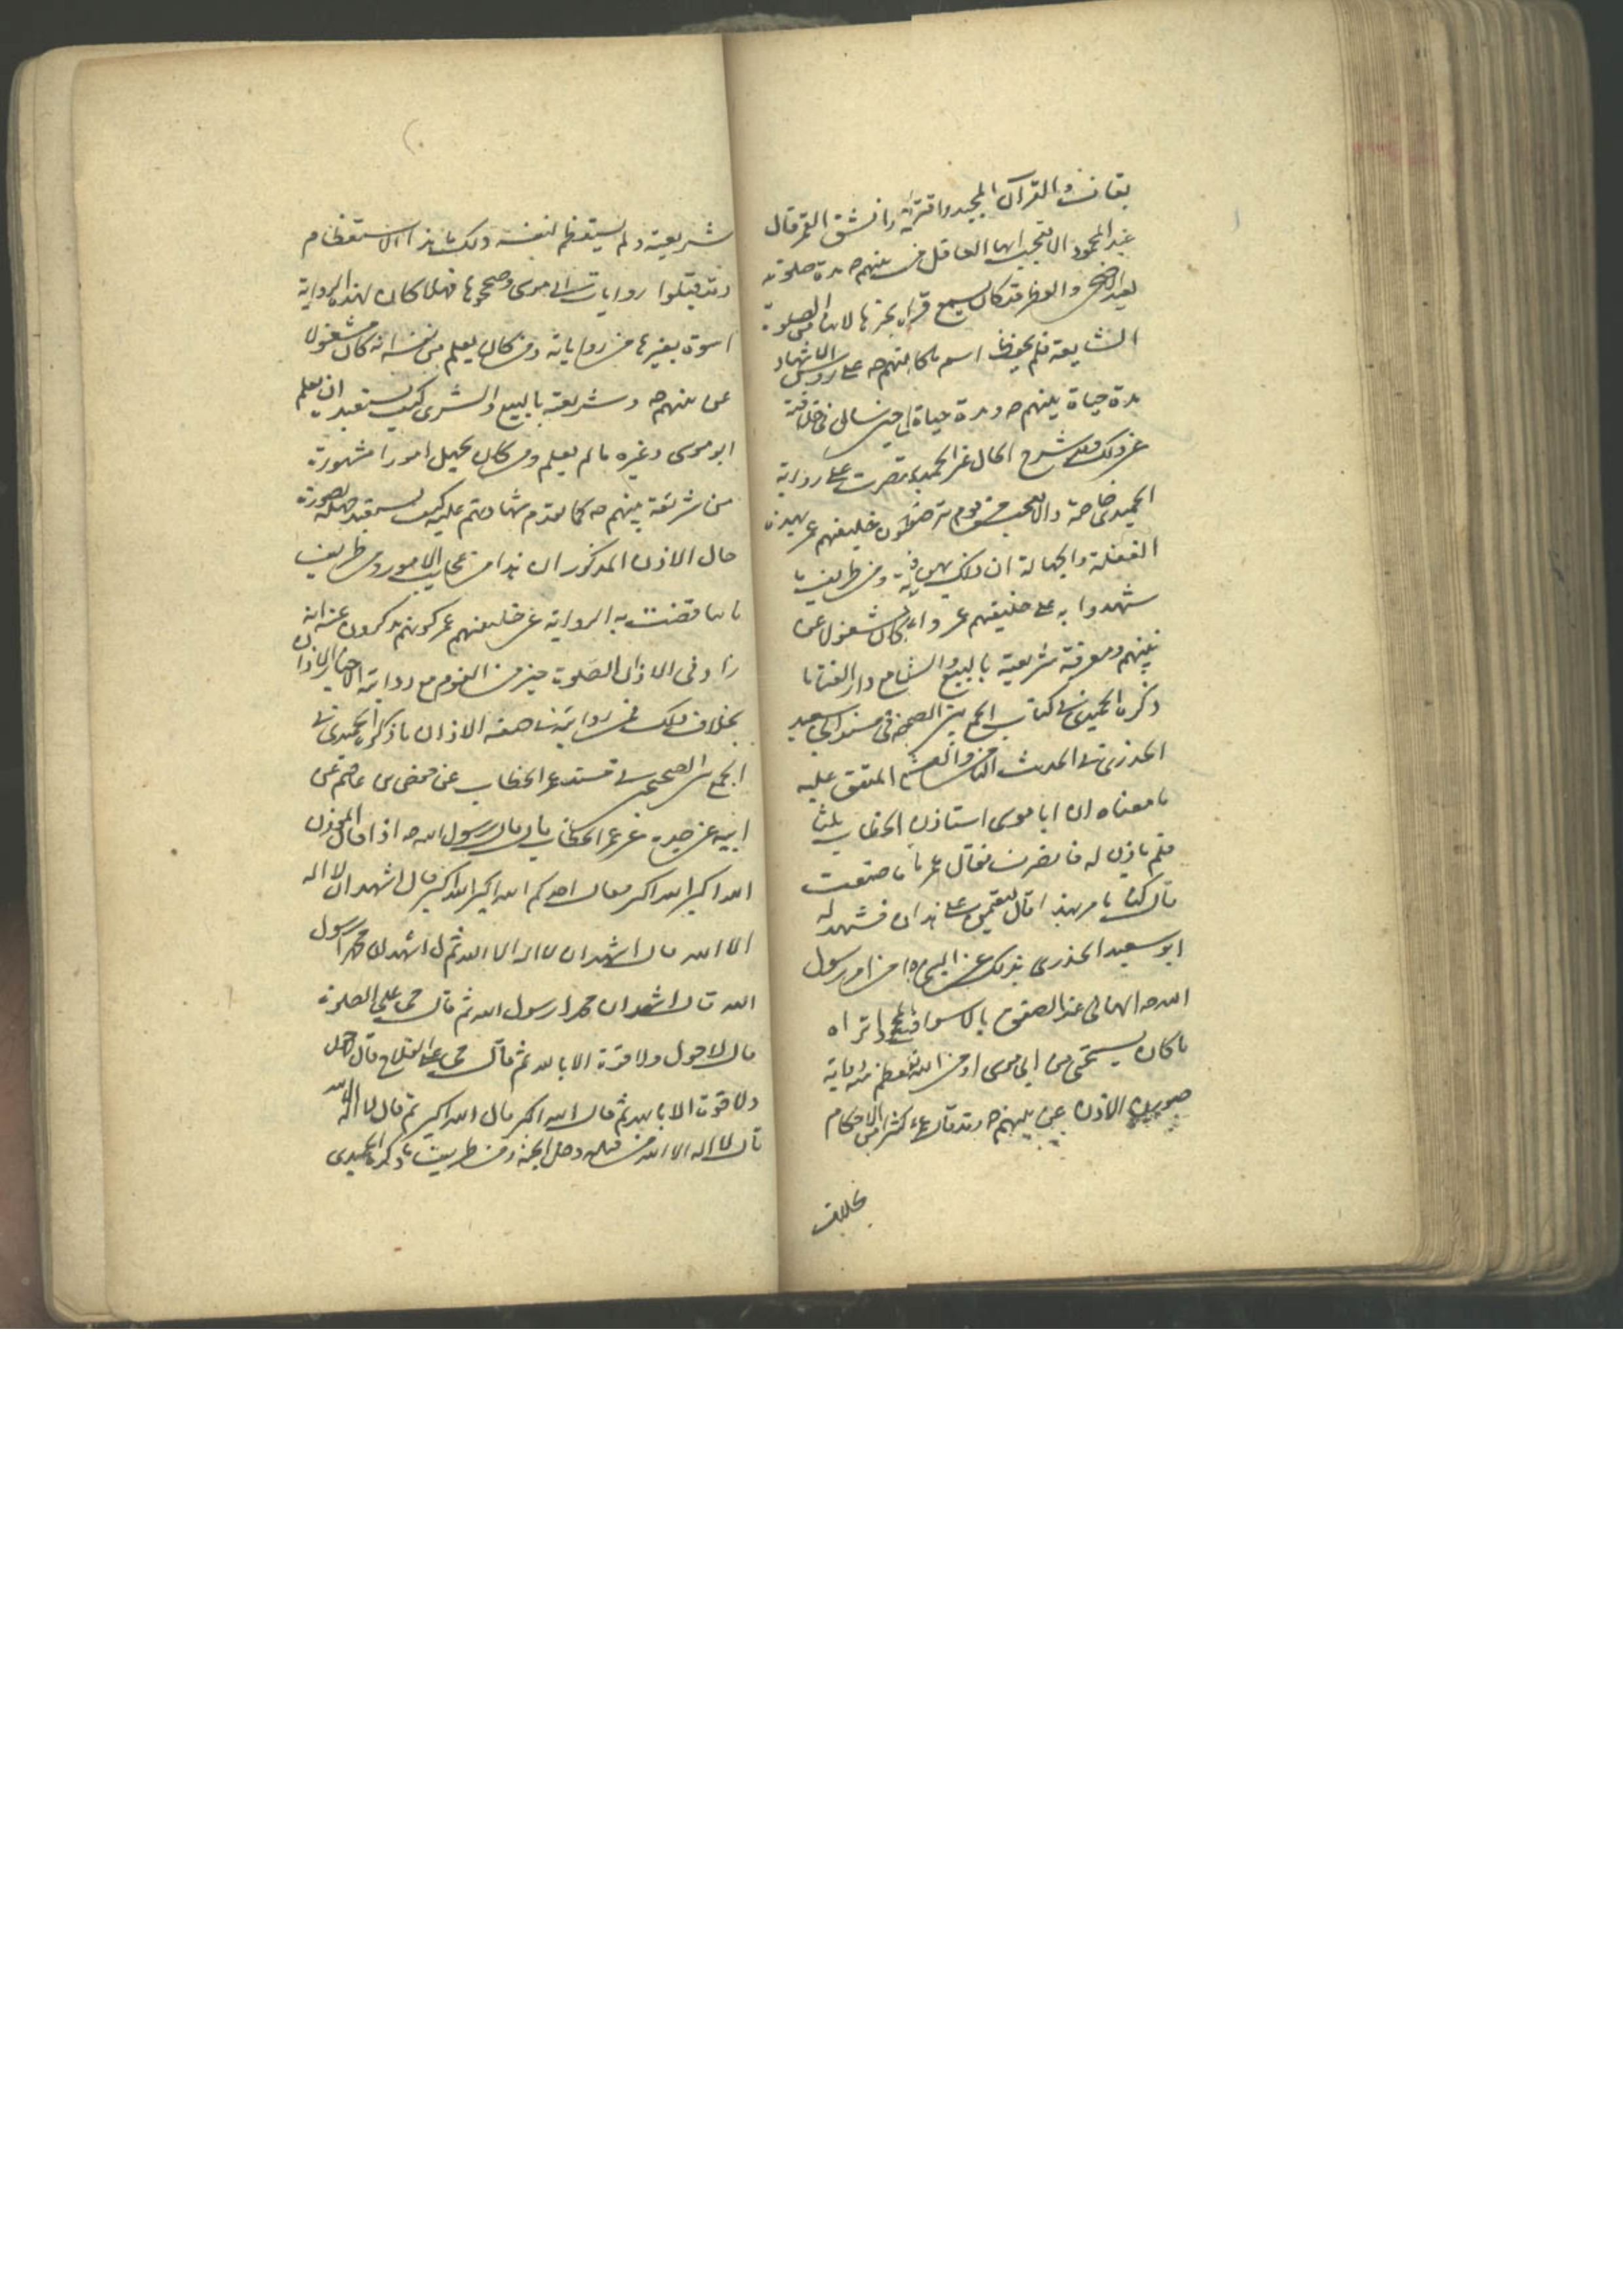 بقاف والقرآن المجيد واقتربت وانشق القمر قال
عبد المحمود الا تتعجب ايها العاقل من نبيهم صلوة
لعيد الاضحى والفطر قد كان يسمع قرائتها لانها من الصلوة
الشايعة فلم يحفظ اسم ما كان نبيهم ص على رؤس الاشهاد
مدة حياة نبيهم ص ومدة حياة ابي حتى سال في خلافته
عن ذلك وقد شرح الحال غير الحميدي اقتصرت على رواية
الحميدي خاصة والعجب من قوم يرتضون خليفتهم عمر بهذه
الغفلة والجهالة ان ذلك ومن طرايف ما
شهدوا به على خليفتهم عمر وانه كان مشغولا عن
نبيهم ومعرفة شريعته بالبيع والشراء ما
ذكره الحميدي في كتاب الجمع بين الصحيحين في مسند ابي سعيد
الخدري في الحديث المتفق عليه
ما معناه ان ابا موسى استاذن الخطاب ثلثا
فلم ياذن له فانصرف فقال عمر ما صنعت
قال كنا نامر بهذا قال لتقيمن على هذا فشهد له
ابو سعيد الخدري بذلك عن النبي من امر رسول
الله ص الهاني عنه الصفق بالاسواق اتراه
ما كان يستحي من ابي موسى او من الله
الاذن عن نبيهم ص وقد قال كثير من الاحكام
بخلاف
شريعته ولم يستعظم لنفسه ذلك ما هذا الاستعظام
وقد قبلوا روايات ابي موسى وصححوها فهلا كان لهذه الرواية
اسوة بغيرها من رواياته ومن كان يعلم من نفسه انه كان مشغولا
عن نبيهم ص وشريعته بالبيع والشرى كيف يستبعد ان يعلم
ابو موسى وغيره ما لم يعلم ومن كان يجهل امورا مشهورة
من شريعة نبيهم ص كما تقدم شهادتهم عليه كيف يستبعد جهله بصورة
حال الاذن المذكور ان هذا من عجايب الامور ومن طرايف
ما تناقضت به الرواية عن خليفتهم عمر كونهم يذكرون عنه انه
زاد في الاذان الصلوة خير من النوم مع روايته الاذان
بخلاف ذلك فمن روايته في صفة الاذان ما ذكره الحميدي في
الجمع بين الصحيحين في مسند عمر الخطاب عن حفص بن عاصم عن
ابيه عن جده عن عمر الخطاب قال قال رسول الله ص اذا قال المؤذن
الله اكبر الله اكبر فقال احدكم الله اكبر الله اكبر ثم قال اشهد ان لا اله
الا الله قال اشهد ان لا اله الا الله ثم قال اشهد ان محمدا رسول
الله قال اشهد ان محمدا رسول الله ثم قال حي على الصلوة
قال لا حول ولا قوة الا بالله ثم قال حي على الفلاح قال لا حول
ولا قوة الا بالله ثم قال الله اكبر قال الله اكبر ثم قال لا اله الا الله
قال لا اله الا الله من قلبه دخل الجنة ومن طريف ما ذكره الحميدي